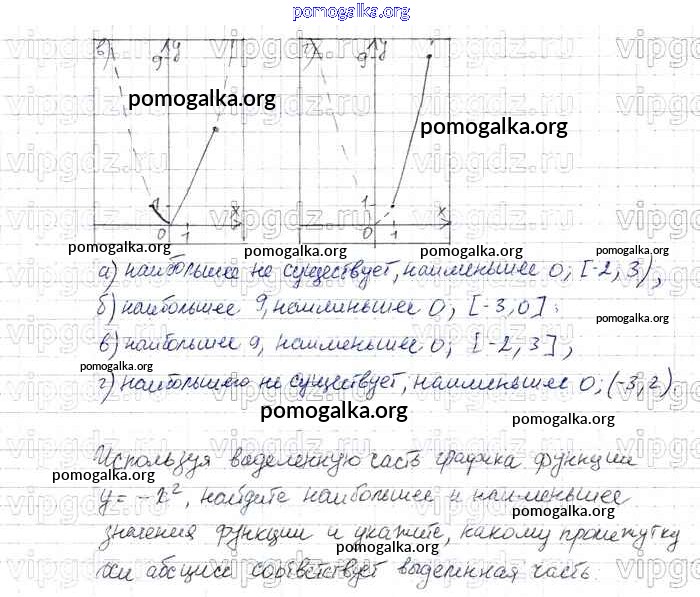 pomogalka.org
в) 9 y г) 9 y
pomogalka.org
pomogalka.org
1 x 1 x
0 1 0 1
pomogalka.org pomogalka.org pomogalka.org
а) наибольшее не существует, наименьшее 0; [-2; 3),
pomogalka.org
б) наибольшее 9, наименьшее 0; [-3; 0];
pomogalka.org
в) наибольшее 9, наименьшее 0; [-2; 3],
pomogalka.org
г) наибольшего не существует, наименьшее 0; (-3, 2)
pomogalka.org
pomogalka.org
Используя выделенную часть графика функции
pomogalka.org
y = -x², найдите наибольшее и наименьшее
pomogalka.org
значения функции и укажите, какому промежутку
pomogalka.org
оси абсцисс соответствует выделенная часть.
pomogalka.org
vipgdz.ru